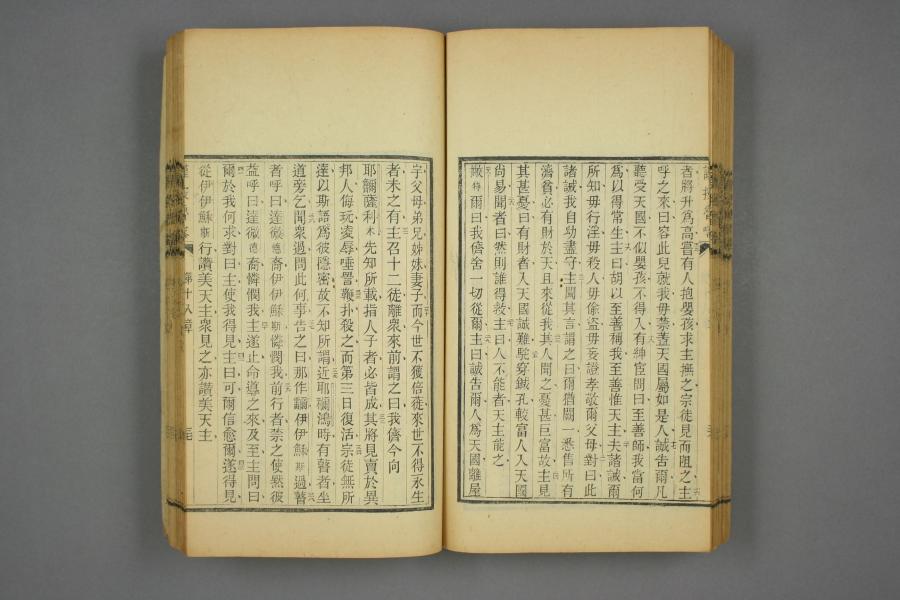 者將升爲高嘗有人抱嬰孩求主撫之宗徒見而阻之主
呼之來曰容此兒就我毋禁蓋天國屬如是人誠告爾凡
聽受天國不似嬰孩不得入有紳宦問曰至善師我當何
爲以得常生主曰胡以至善稱我至善惟天主夫諸誡爾
所知毋行淫毋殺人毋偷盜毋妄證孝敬爾父母對曰此
諸誡我自幼盡守主聞其言謂之曰爾猶闕一悉售所有
濟貧必有財於天且來從我其人聞之憂甚巨富故主見
其甚憂曰有財者入天國誠難駝穿鍼孔較富人入天國
尚易聞者曰然則誰得救主曰人不能者天主能之
爾曰我儕舍一切從爾主曰誠告爾人爲天國離屋
宇父母弟兄姊妹妻子而今世不獲倍蓰來世不得永生
者未之有主召十二徒離衆來前謂之曰我儕今向
耶爾薩利木先知所載指人子者必皆成其將見賣於異
邦人侮玩凌辱唾詈鞭扑殺之而第三日復活宗徒無所
達以斯語爲彼隱密故不知所謂近耶爾鴻時有瞽者坐
道旁乞聞衆過問此何事告之曰那作爾伊伊穌斯過瞽
者呼曰達微德裔伊伊穌斯憐憫我前行者禁之使緘彼
益呼曰達微德裔憐憫我主遂止命導之來及至主問曰
爾於我何求對曰主使我得見主曰可爾信愈爾遂得見
從伊伊穌斯行讚美天主衆見之亦讚美天主
第十八章